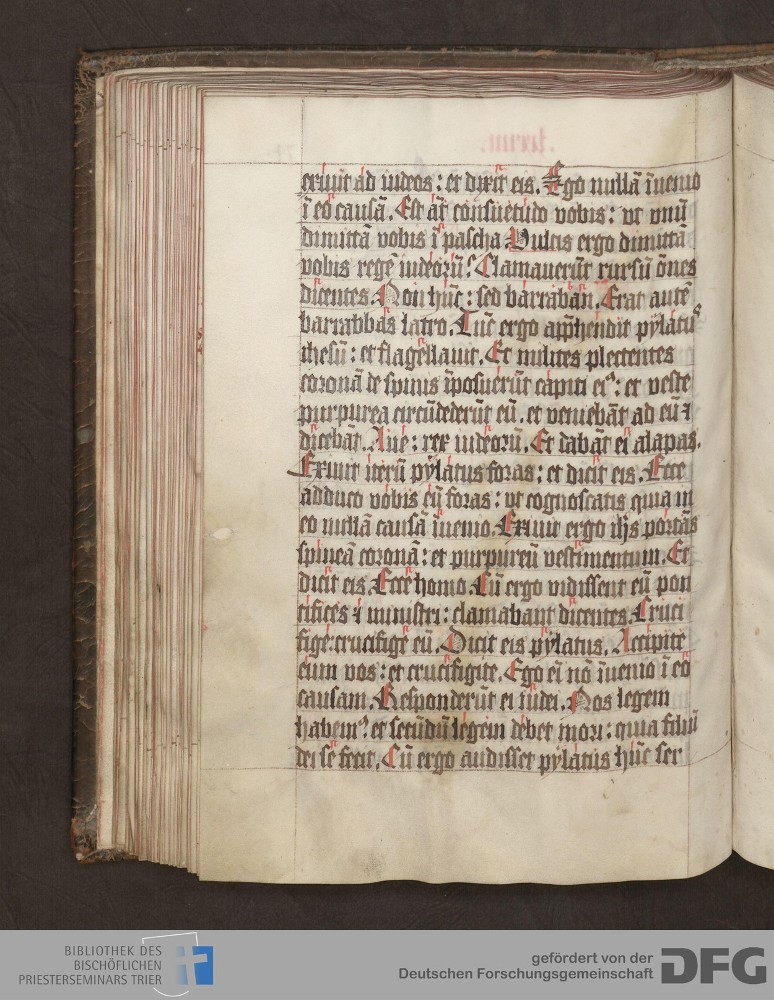 exiuit ad iudeos: et dixit eis. Ego nullā īuenio
ī eo causā. Est aūt consuetudo vobis: vt vnū
dimittā vobis ī pascha. Vultis ergo dimittā
vobis regē iudeorū? Clamauerūt rursū oēs
dicentes. Non hūc: sed barraban. Erat autē
barrabbas latro. Tūc ergo apphendit pylatꝰ
ihesū: et flagellauit. Et milites plectentes
coronā de spinis īposuerūt capiti eiꝰ: et veste
purpurea circūdederūt eū. et veniebāt ad eū ⁊
dicebāt. Aue: rex iudeorū. Et dabāt ei alapas.
Exiuit iterū pylatus foras: et dicit eis. Ecce
adduco vobis eū foras: vt cognoscatis quia in
eo nullā causā īuenio. Exiuit ergo ihs portās
spineā coronā: et purpureū vestimentum. Et
dicit eis. Ecce homo. Cū ergo vidissent eū pon
tifices ⁊ ministri: clamabant dicentes. Cruci
fige: crucifige eū. Dicit eis pylatus. Accipite
eum vos: et crucifigite. Ego eī nō īuenio ī eo
causam. Responderūt ei iudei. Nos legem
habemꝰ: et secūdū legem debet mori: quia filiū
dei se fecit. Cū ergo audisset pylatus hūc ser
BIBLIOTHEK DES
BISCHÖFLICHEN
PRIESTERSEMINARS TRIER
gefördert von der
Deutschen Forschungsgemeinschaft
DFG